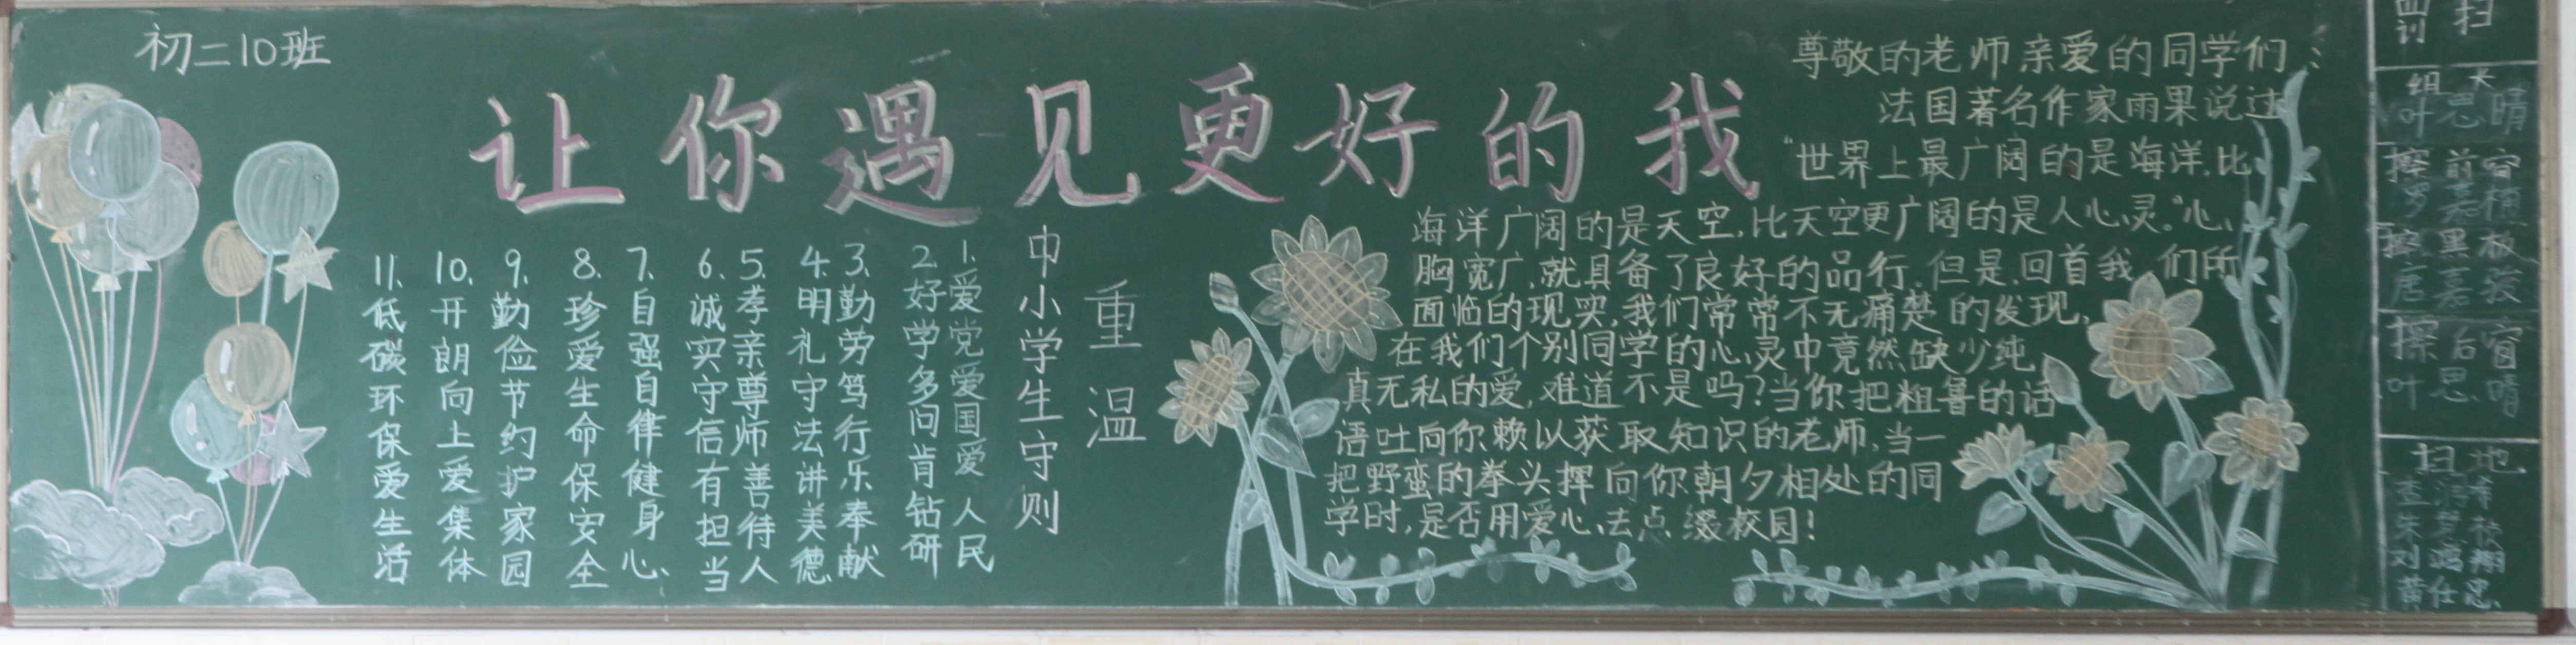 初二10班
让你遇见更好的我
重温
中小学生守则
1.爱党爱国爱人民
2.好学多问肯钻研
3.勤劳笃行乐奉献
4.明礼守法讲美德
5.孝亲尊师善待人
6.诚实守信有担当
7.自强自律健身心
8.珍爱生命保安全
9.勤俭节约护家园
10.开朗向上爱集体
11.低碳环保爱生活
尊敬的老师亲爱的同学们:
法国著名作家雨果说过
“世界上最广阔的是海洋,比
海洋广阔的是天空,比天空更广阔的是人心灵。”心
胸宽广,就具备了良好的品行.但是,回首我们所
面临的现实,我们常常不无痛楚的发现,
在我们个别同学的心灵中竟然缺少纯
真无私的爱,难道不是吗?当你把粗鲁的话
语吐向你赖以获取知识的老师,当一
把野蛮的拳头挥向你朝夕相处的同
学时,是否用爱心去点缀校园!
扫
组长
叶思晴
擦前窗
擦黑板
唐嘉骏
擦后窗
叶思晴
扫地